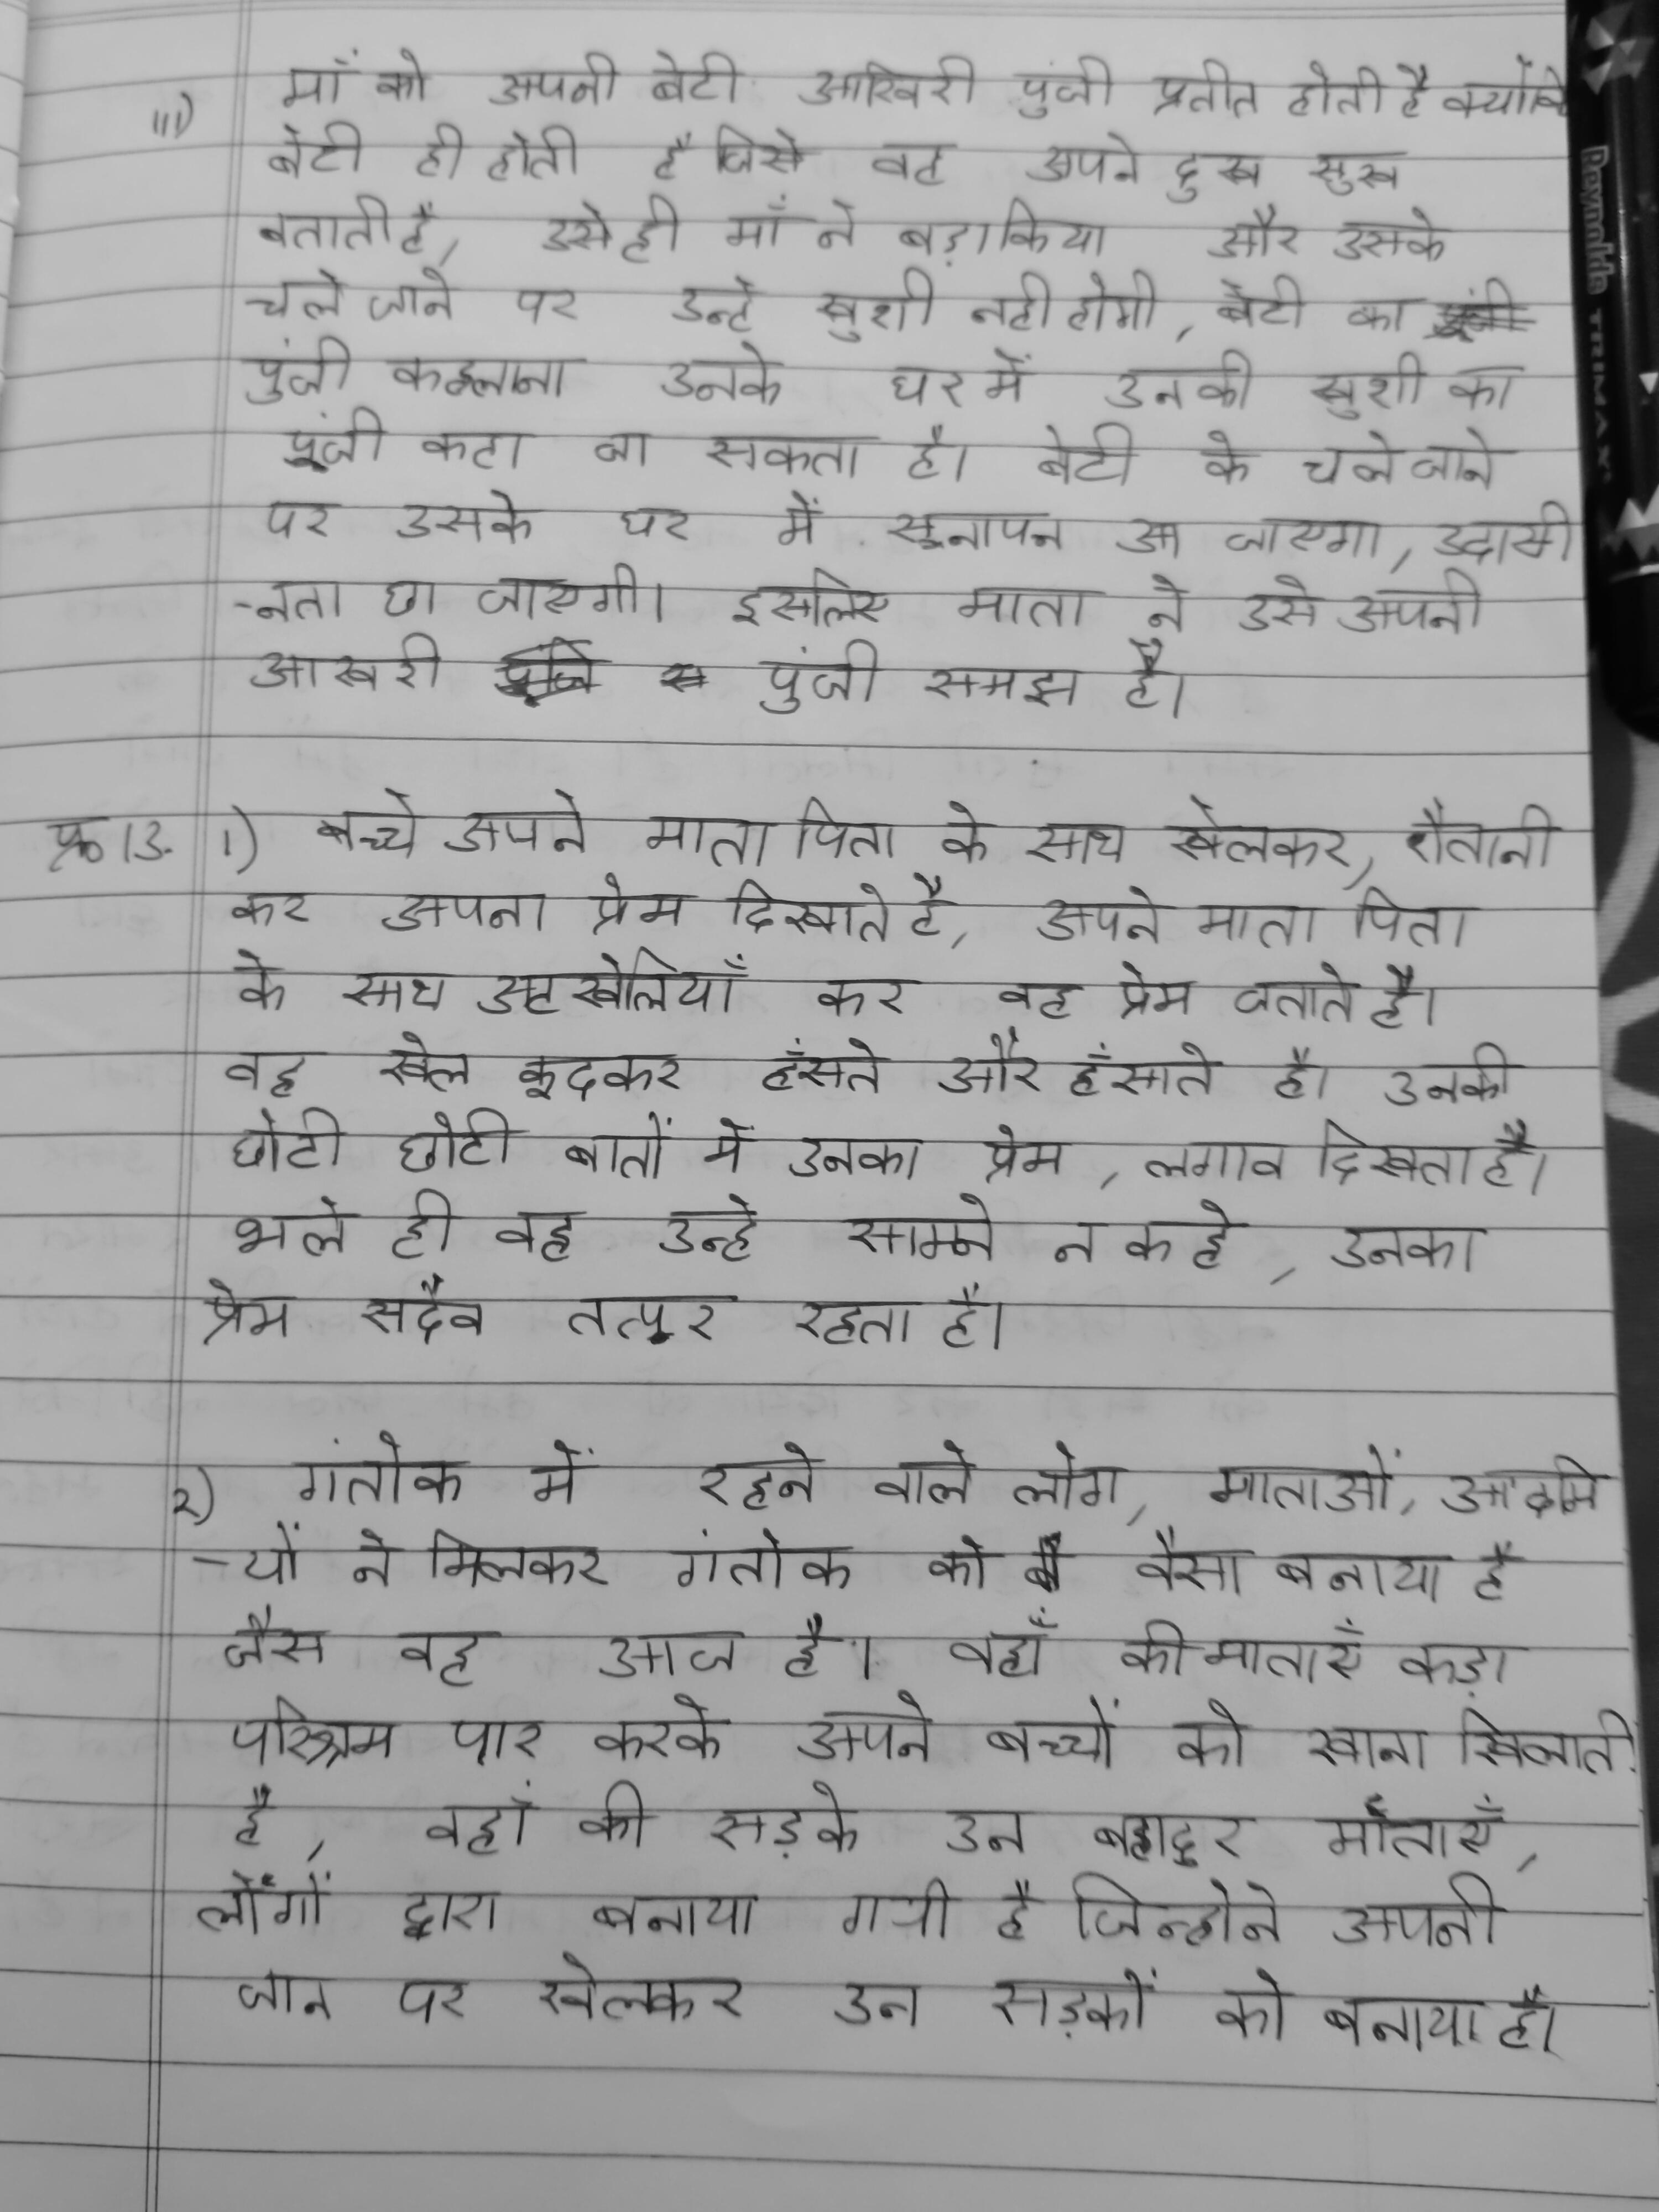 iii) माँ को अपनी बेटी आखिरी पुंजी प्रतीत होती है क्योंकि
बेटी ही होती है जिसे वह अपने दुख सुख
बताती है, उसे ही माँ ने बड़ा किया और उसके
चले जाने पर उन्हे खुशी नही होगी, बेटी का
पुंजी कहलाना उनके घर में उनकी खुशी का
पूंजी कहा जा सकता है। बेटी के चले जाने
पर उसके घर में सूनापन आ जाएगा, उदासी
-नता छा जाएगी। इसलिए माता ने उसे अपनी
आखरी पुंजी समझ है।
प्र० 13. 1) बच्चे अपने माता पिता के साथ खेलकर, शैतानी
कर अपना प्रेम दिखाते है, अपने माता पिता
के साथ अटखेलियाँ कर वह प्रेम जताते है।
वह खेल कूदकर हँसते और हँसाते है। उनकी
छोटी छोटी बातों में उनका प्रेम, लगाव दिखता है।
भले ही वह उन्हे साम्ने न कहे, उनका
प्रेम सदैव तत्पुर रहता है।
2) गंतोक में रहने वाले लोग, माताओं, आदमि
-यों ने मिलकर गंतोक को वैसा बनाया है
जैस वह आज है। वहाँ की माताएँ कड़ा
परिश्रम पार करके अपने बच्चों को खाना खिलाती
है, वहाँ की सड़के उन बहादुर माताएँ,
लोगों द्वारा बनाया गयी है जिन्होने अपनी
जान पर खेलकर उन सड़कों को बनाया है।
Reynolds TRIMAX